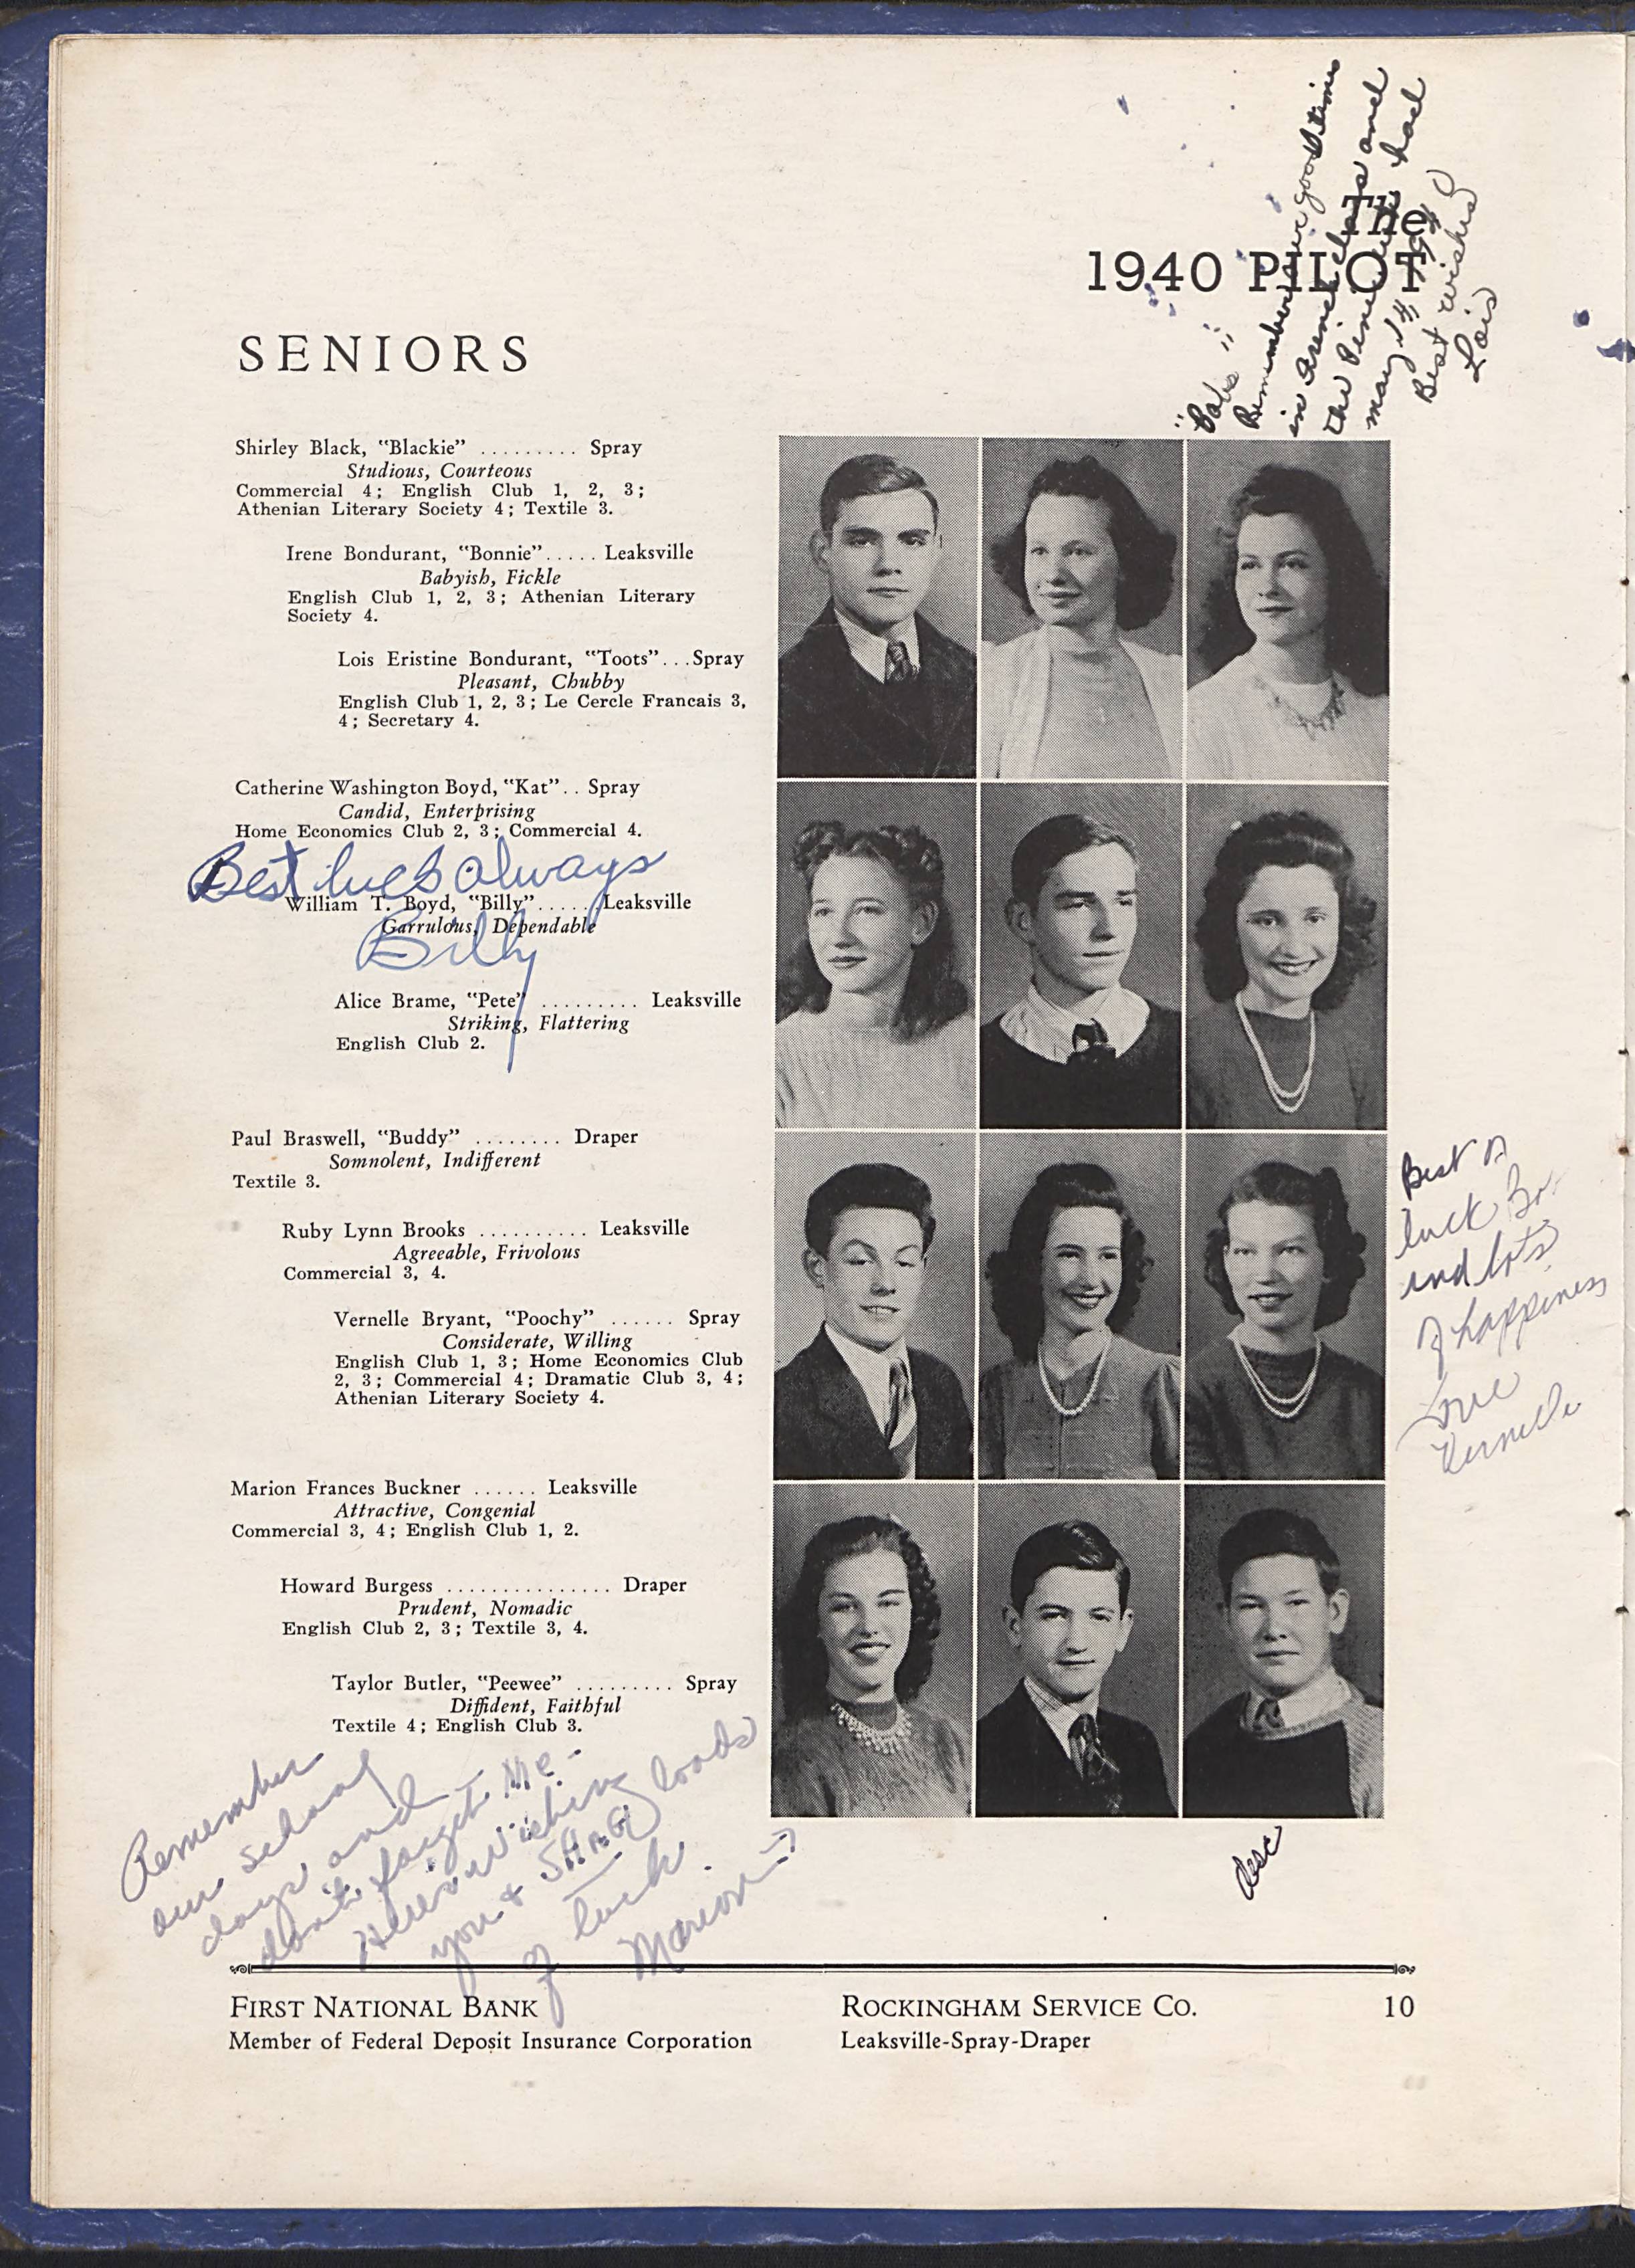 "Babs"
Remember our good times
in French class and
the Picnic we had
may 14, 1940
Best wishes
Lois
The
1940 PILOT
SENIORS
Shirley Black, "Blackie" ......... Spray
Studious, Courteous
Commercial 4; English Club 1, 2, 3;
Athenian Literary Society 4; Textile 3.
Irene Bondurant, "Bonnie"..... Leaksville
Babyish, Fickle
English Club 1, 2, 3; Athenian Literary
Society 4.
Lois Eristine Bondurant, "Toots"...Spray
Pleasant, Chubby
English Club 1, 2, 3; Le Cercle Francais 3,
4; Secretary 4.
Catherine Washington Boyd, "Kat".. Spray
Candid, Enterprising
Home Economics Club 2, 3; Commercial 4.
Best luck always
William T. Boyd, "Billy"..... Leaksville
Garrulous, Dependable
Billy
Alice Brame, "Pete" ......... Leaksville
Striking, Flattering
English Club 2.
Paul Braswell, "Buddy" ........ Draper
Somnolent, Indifferent
Textile 3.
Ruby Lynn Brooks .......... Leaksville
Agreeable, Frivolous
Commercial 3, 4.
Vernelle Bryant, "Poochy" ...... Spray
Considerate, Willing
English Club 1, 3; Home Economics Club
2, 3; Commercial 4; Dramatic Club 3, 4;
Athenian Literary Society 4.
Best of
luck
and lots
of happiness
Love
Vernelle
Marion Frances Buckner ...... Leaksville
Attractive, Congenial
Commercial 3, 4; English Club 1, 2.
Howard Burgess ............... Draper
Prudent, Nomadic
English Club 2, 3; Textile 3, 4.
Taylor Butler, "Peewee" ......... Spray
Diffident, Faithful
Textile 4; English Club 3.
Remember
our school
days and
don't forget Me-
Here's wishing
you & loads
of luck.
Marion
FIRST NATIONAL BANK
Member of Federal Deposit Insurance Corporation
ROCKINGHAM SERVICE CO.
Leaksville-Spray-Draper
10